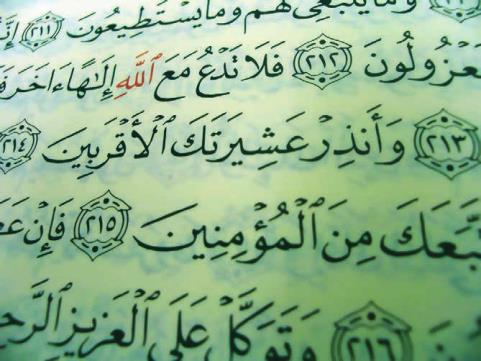 وَمَا يَنۢبَغِى لَهُمْ وَمَا يَسْتَطِيعُونَ ٢١١
لَمَعْزُولُونَ ٢١٢ فَلَا تَدْعُ مَعَ ٱللَّهِ إِلَٰهًا ءَاخَرَ
٢١٣ وَأَنذِرْ عَشِيرَتَكَ ٱلْأَقْرَبِينَ ٢١٤
مِنَ ٱلْمُؤْمِنِينَ ٢١٥ فَإِنْ
٢١٦ وَتَوَكَّلْ عَلَى ٱلْعَزِيزِ